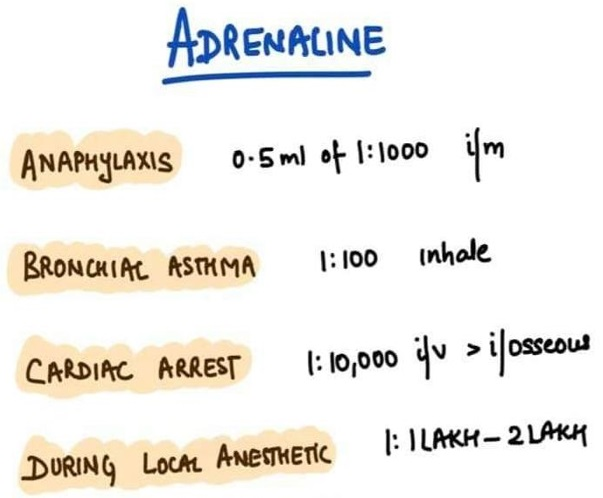 ADRENALINE
ANAPHYLAXIS 0.5ml of 1:1000 i/m
BRONCHIAL ASTHMA 1:100 inhale
CARDIAC ARREST 1:10,000 i/v > i/osseous
DURING LOCAL ANESTHETIC 1: 1 LAKH - 2 LAKH